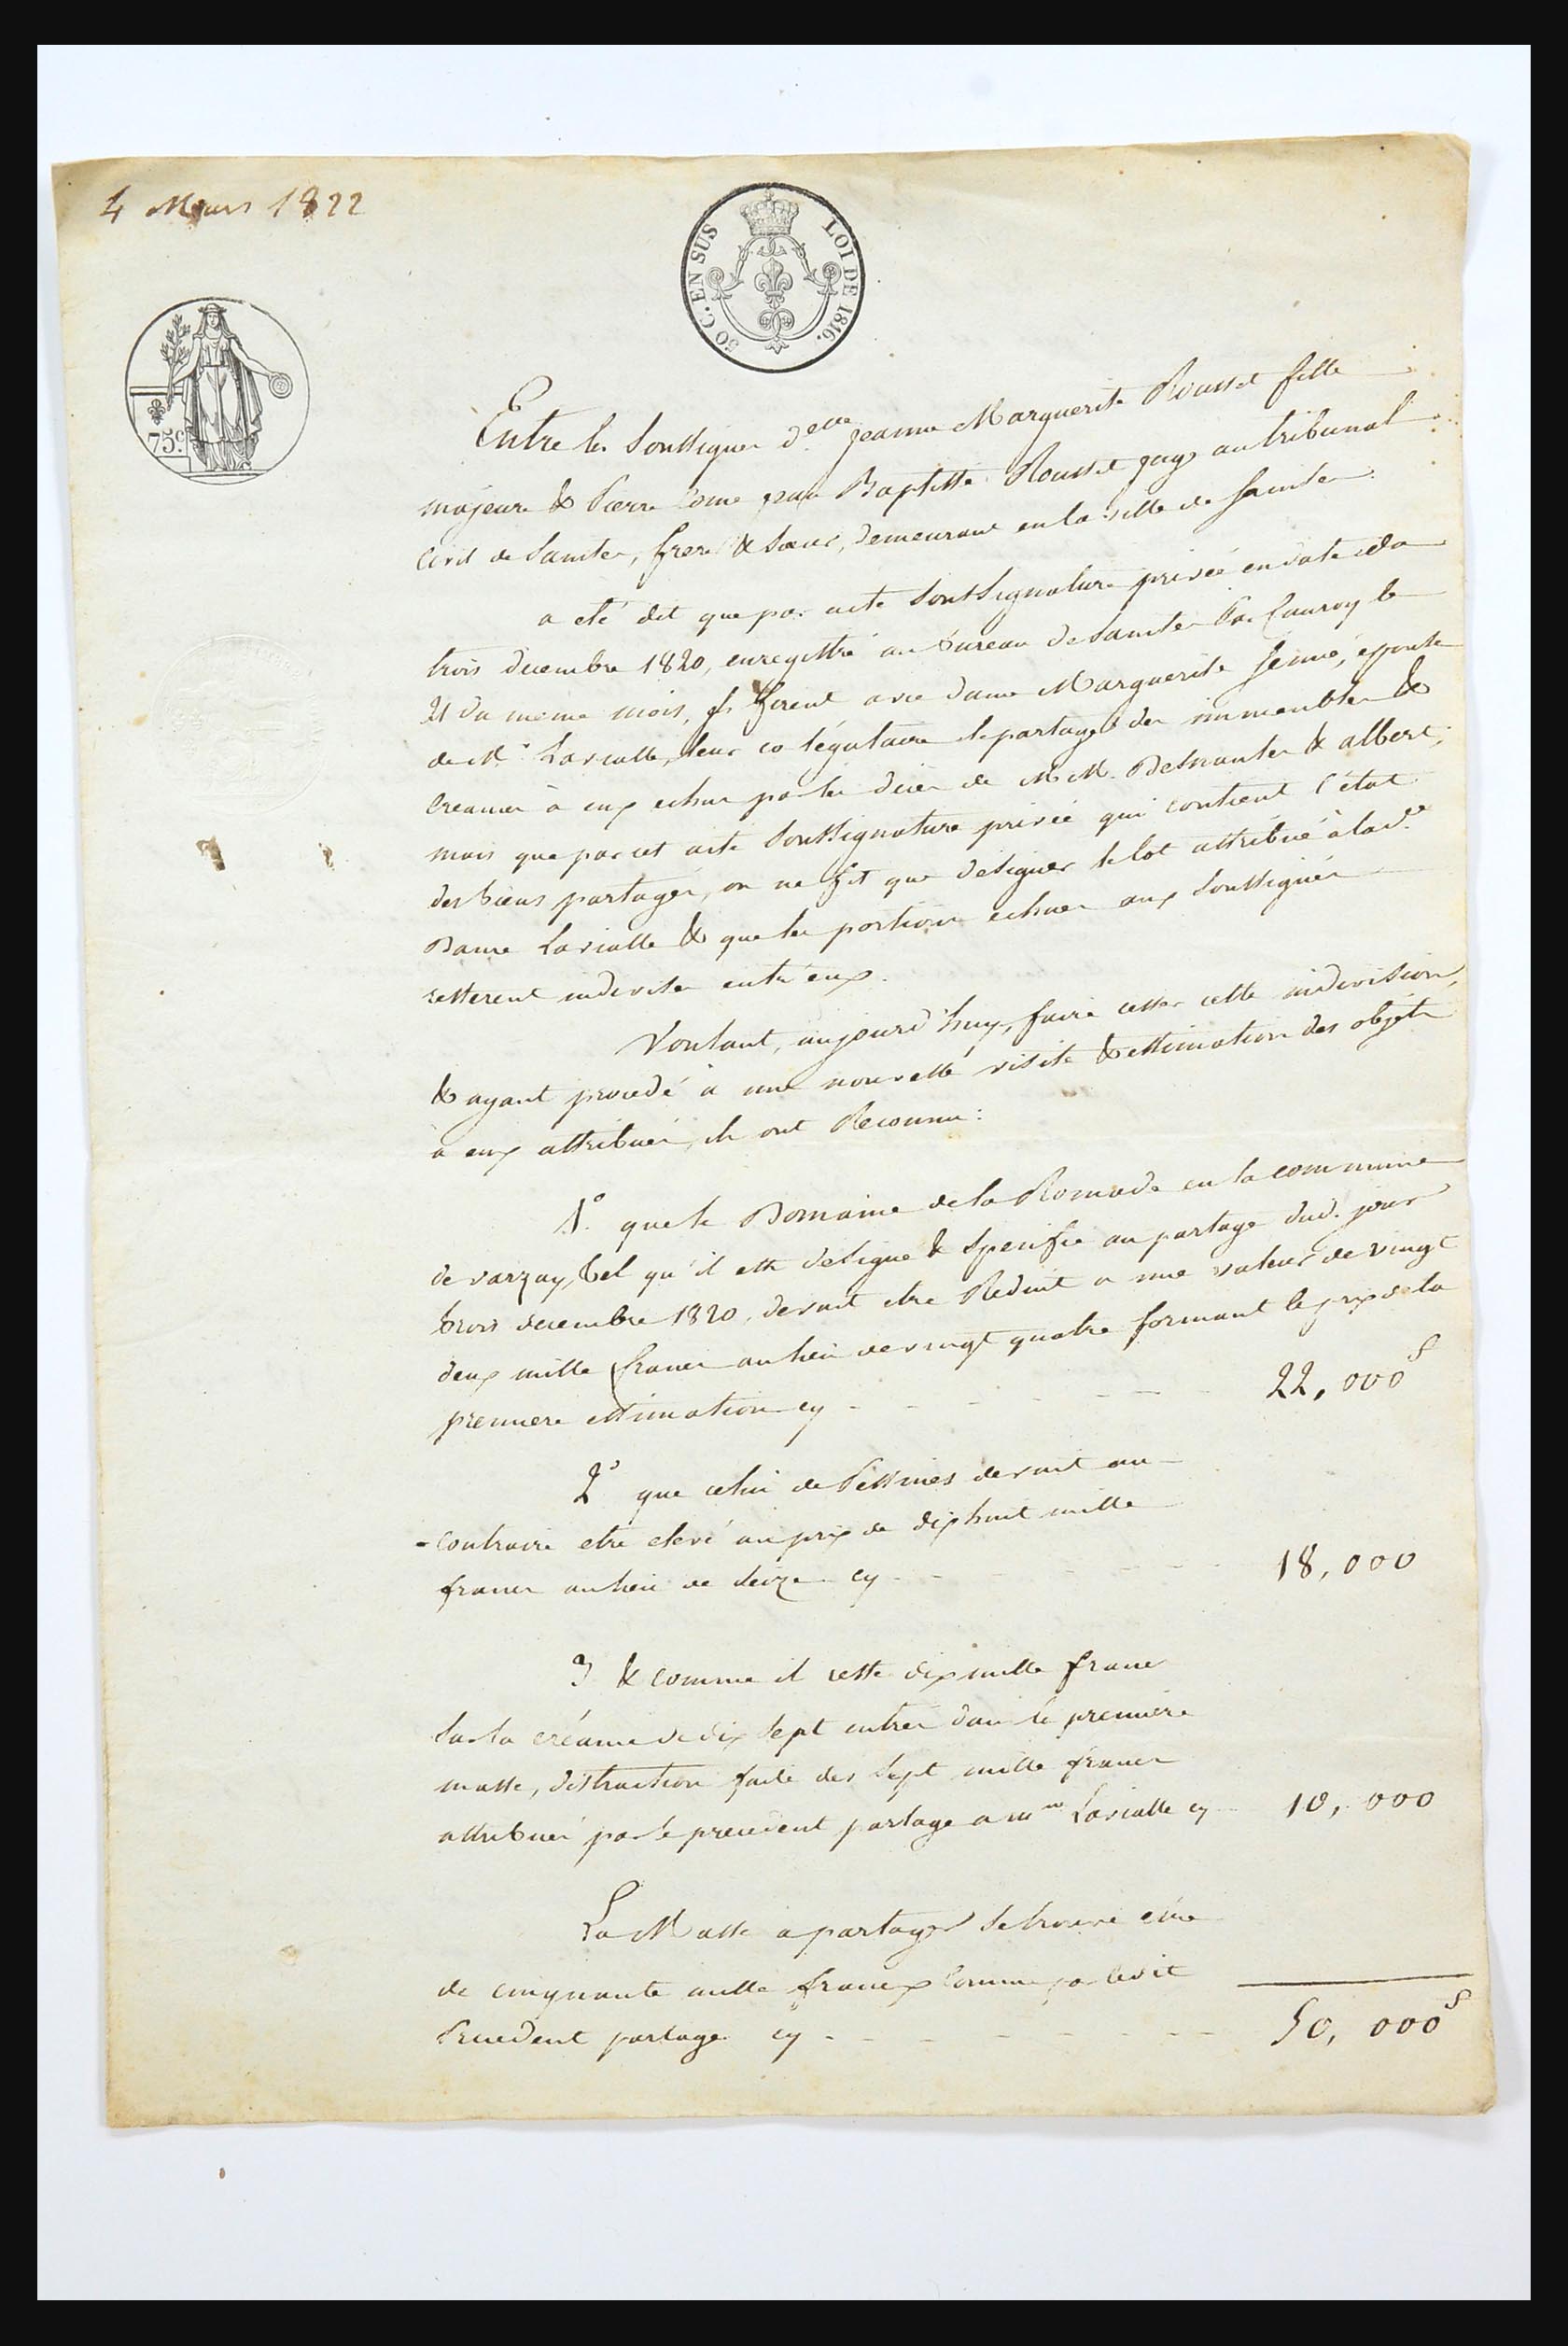 4 Mars 1822
50 C. EN SUS LOI DE 1816.
75c.
Entre les Soussignés d.elle Jeanne Marguerite Rousset fille
majeure & Pierre Come Jean Baptiste Rousset juge au tribunal
Civil de Saintes, frere & Soeur, demeurant en la ville de Saintes
a eté dit que par acte Sous Signature privée en date du
trois decembre 1820, enregistré au bureau de Saintes Par Cauroy le
21 du meme mois, ils firent avec dame Marguerite, épouse
de Mr. Lavialle, leur co légataire le partage des immeubles &
Creances à eux echus par les décès de M M. & albert,
mais que par cet acte Sous Signature privée qui contient l'état
des biens partagés, on ne fit que designer le lot attribué à la d.e
Dame Lavialle & que les portions echues aux Soussignés
resterent indivises entr'eux.
Voulant, aujourd'huy, faire cesser cette indivision,
& ayant procedé à une nouvelle visite & estimation des objets
à eux attribués, ils ont Reconnu:
1.° que le Domaine de la Romade en la commune
de varzay, tel qu'il est designé & specifié au partage dud. jour
trois decembre 1820, devait etre Reduit a une valeur de vingt
deux mille francs au lieu de vingt quatre formant le prix de la
premiere estimation cy - - - - 22,000f
2° que celui de Pessines devait au
contraire etre elevé au prix de dix huit mille
francs au lieu de Seize cy - - - - 18,000
3 & comme il reste dix mille francs
Sur la créance de dix Sept entrée dans la premiere
masse, distraction faite des Sept mille francs
attribués par le precedent partage a me Lavialle cy 10,000
La Masse a partager Se trouve être
de cinquante mille francs Comme par ledit
Precedent partage cy - - - - 50,000f